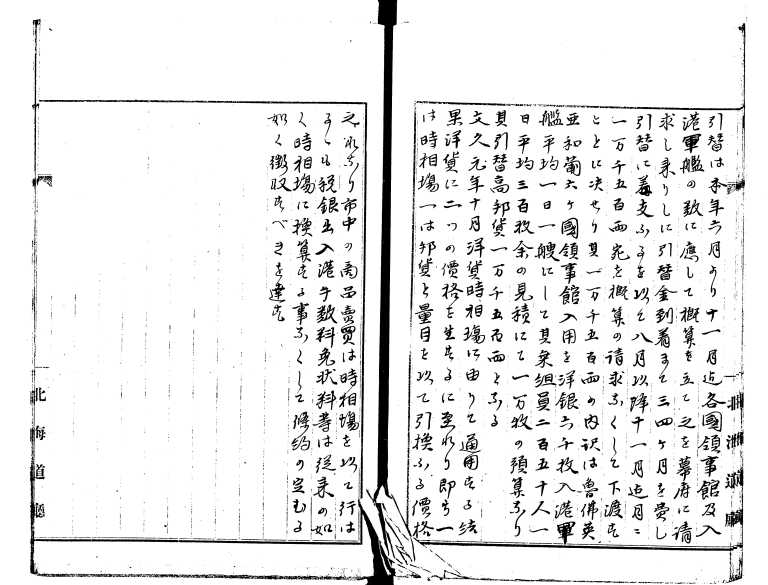 引替は本年六月より十一月迄各國領事館及入
港軍艦の数に應して概算を立て之を幕府に請
求し来りしに引替金到着まて三四ヶ月を費し
引替に差支ふるを以て八月以降十一月迄月二
一万千五百両宛を概算の請求なくして下渡す
ことに決せり其一万千五百両の内訳は魯佛英
亜和葡六ヶ國領事館入用を洋銀六千枚入港軍
艦平均一日一艘にして其乗組員二百五十人一
日平均三百枚余の見積にて一万枚の預算なり
其引替高邦貨一万千五百両となる
文久元年十月洋貨時相場に由りて通用する結
果洋貨に二つの價格を生するに至れり即ち一
は時相場一は邦貨と量目を以て引換ふる價格
之れなり市中の商品賣買は時相場を以て行は
るゝも税銀出入港手数料免状料等は従来の如
く時相場に換算する事なくして條約の定むる
如く徴収すべきを達す
北海道廳